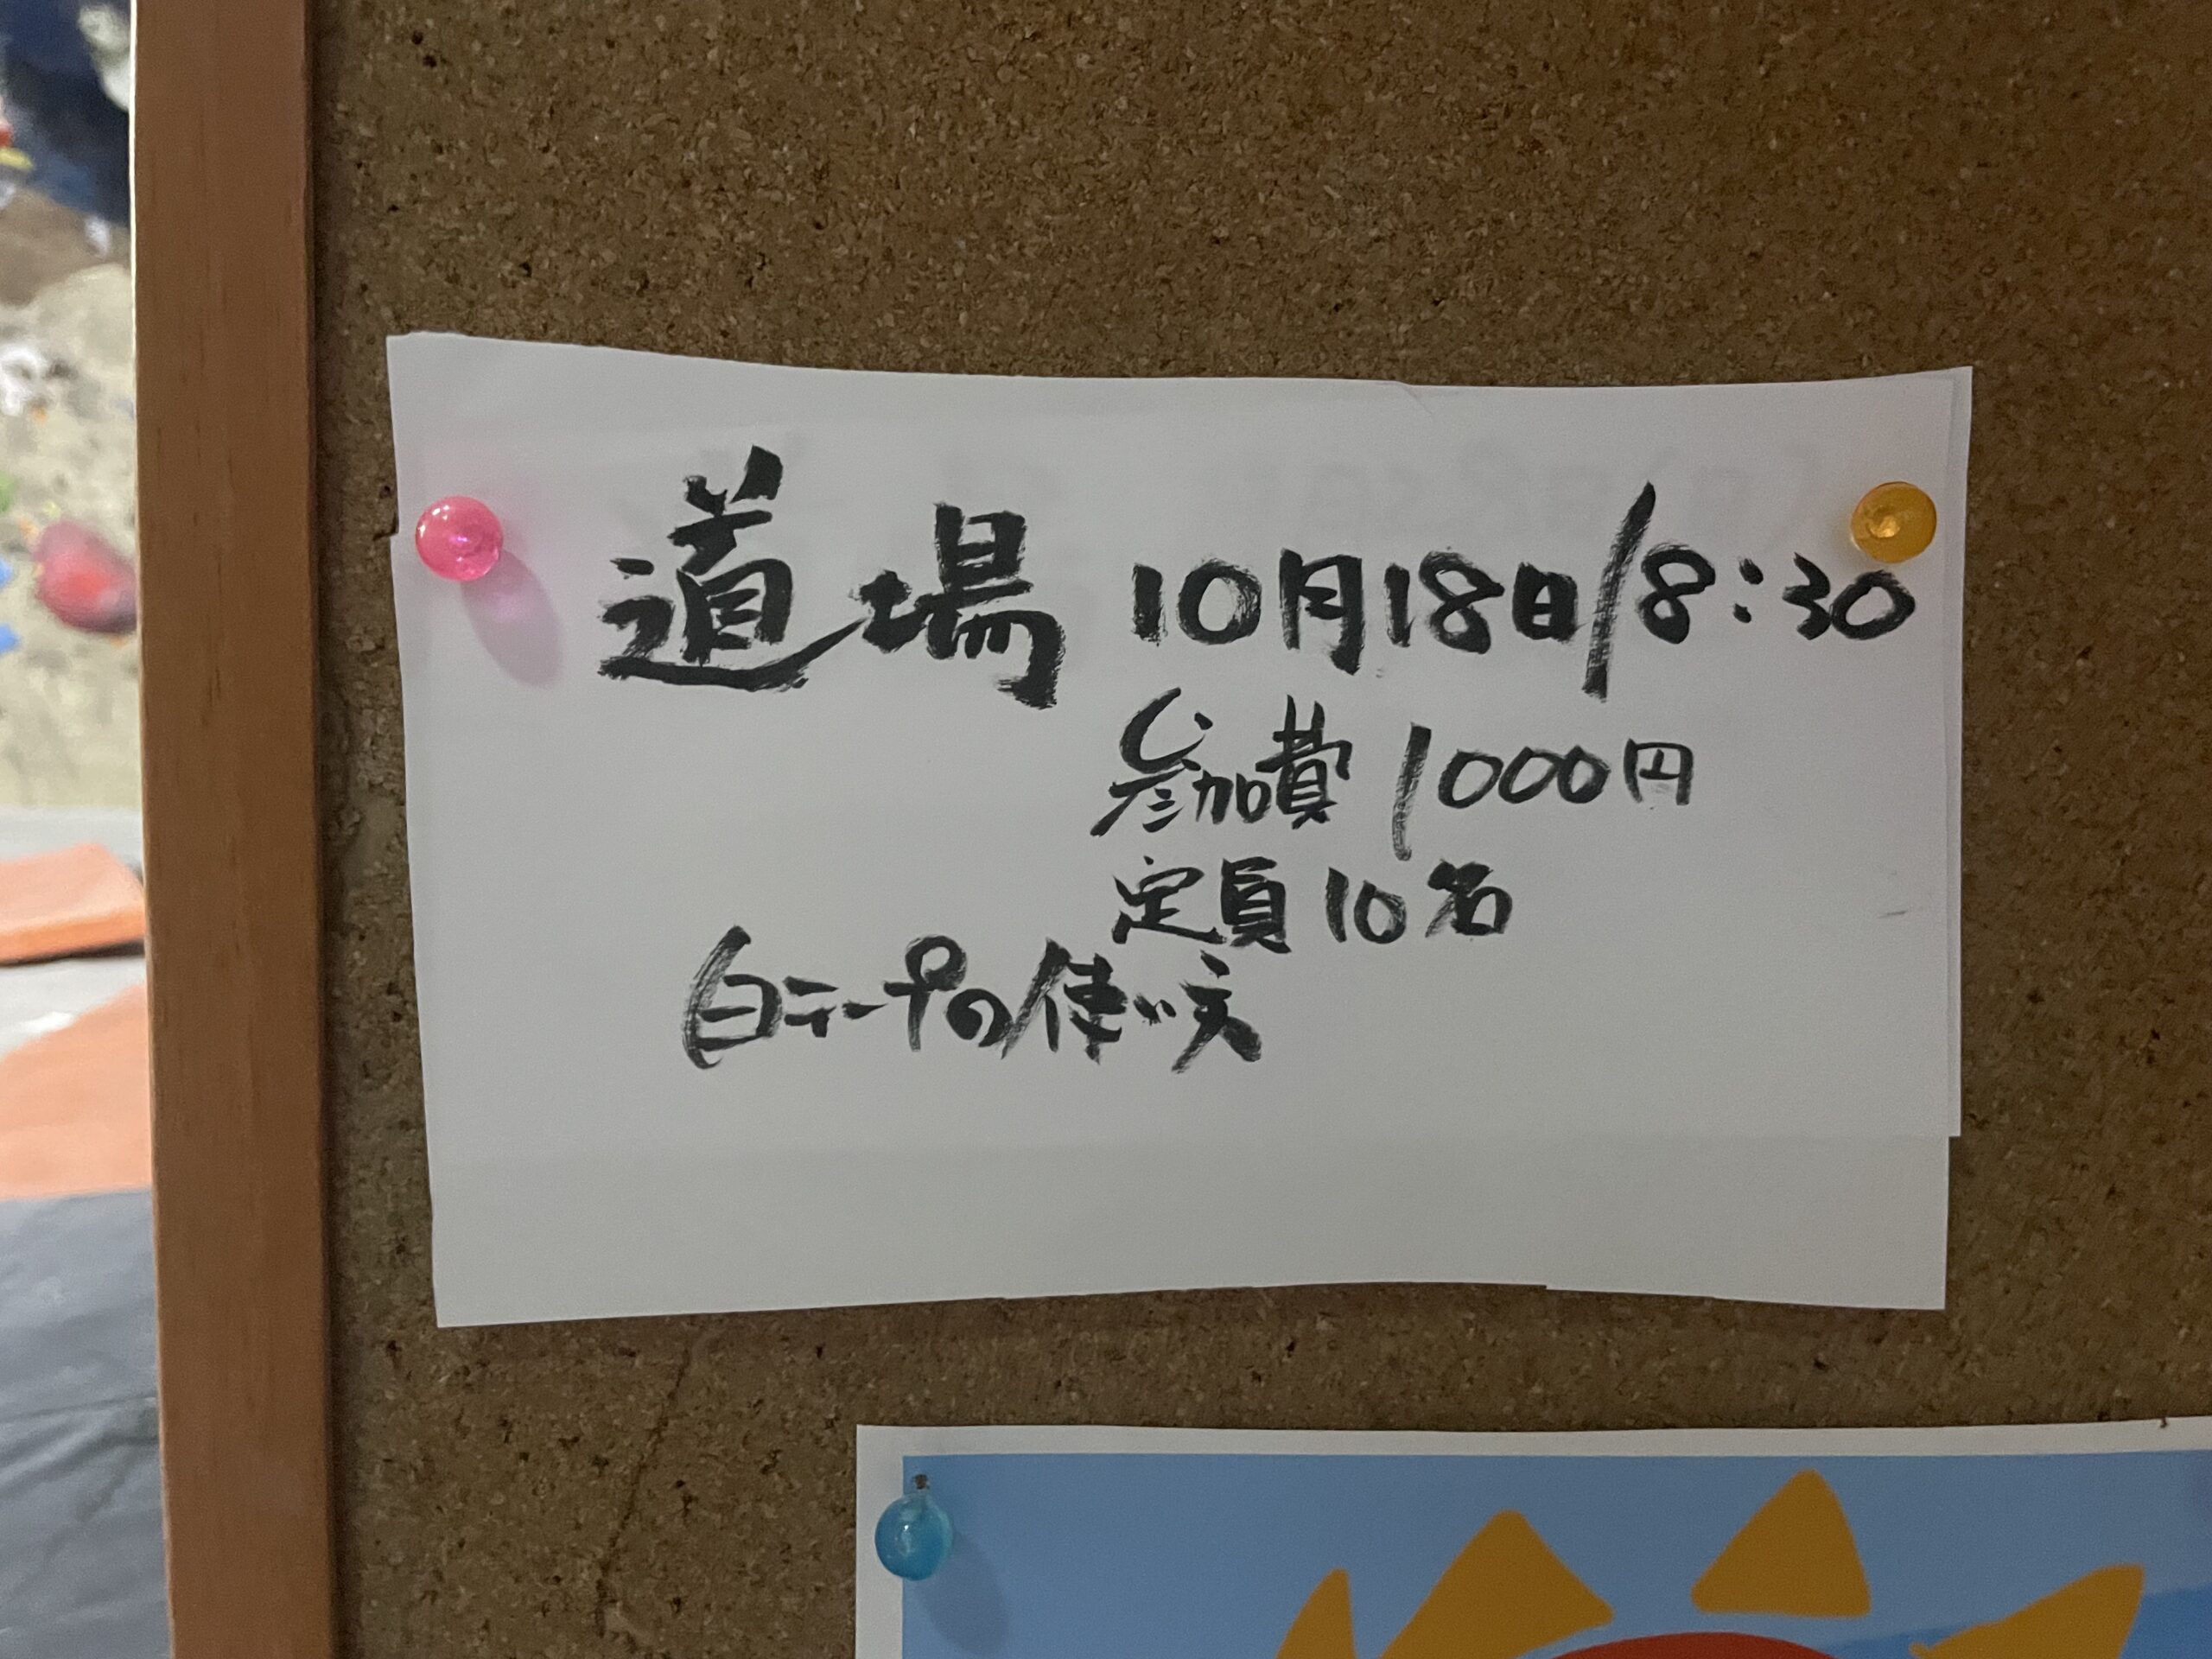 道場 10月18日/8:30
参加費 1000円
定員10名
白テープの使い方